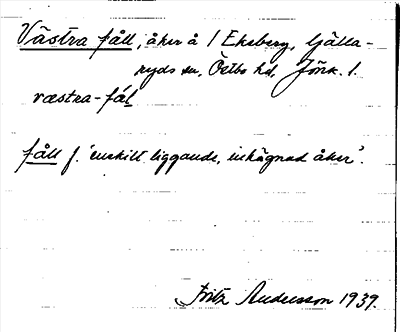 Västra fåll, åker å 1 Ekeberg, Gälla-
ryds sn, Östbo hd, Jönk. l.
væstra-fål
fåll f. 'enskilt liggande, inhägnad åker'.
Fritz Andersson 1939.